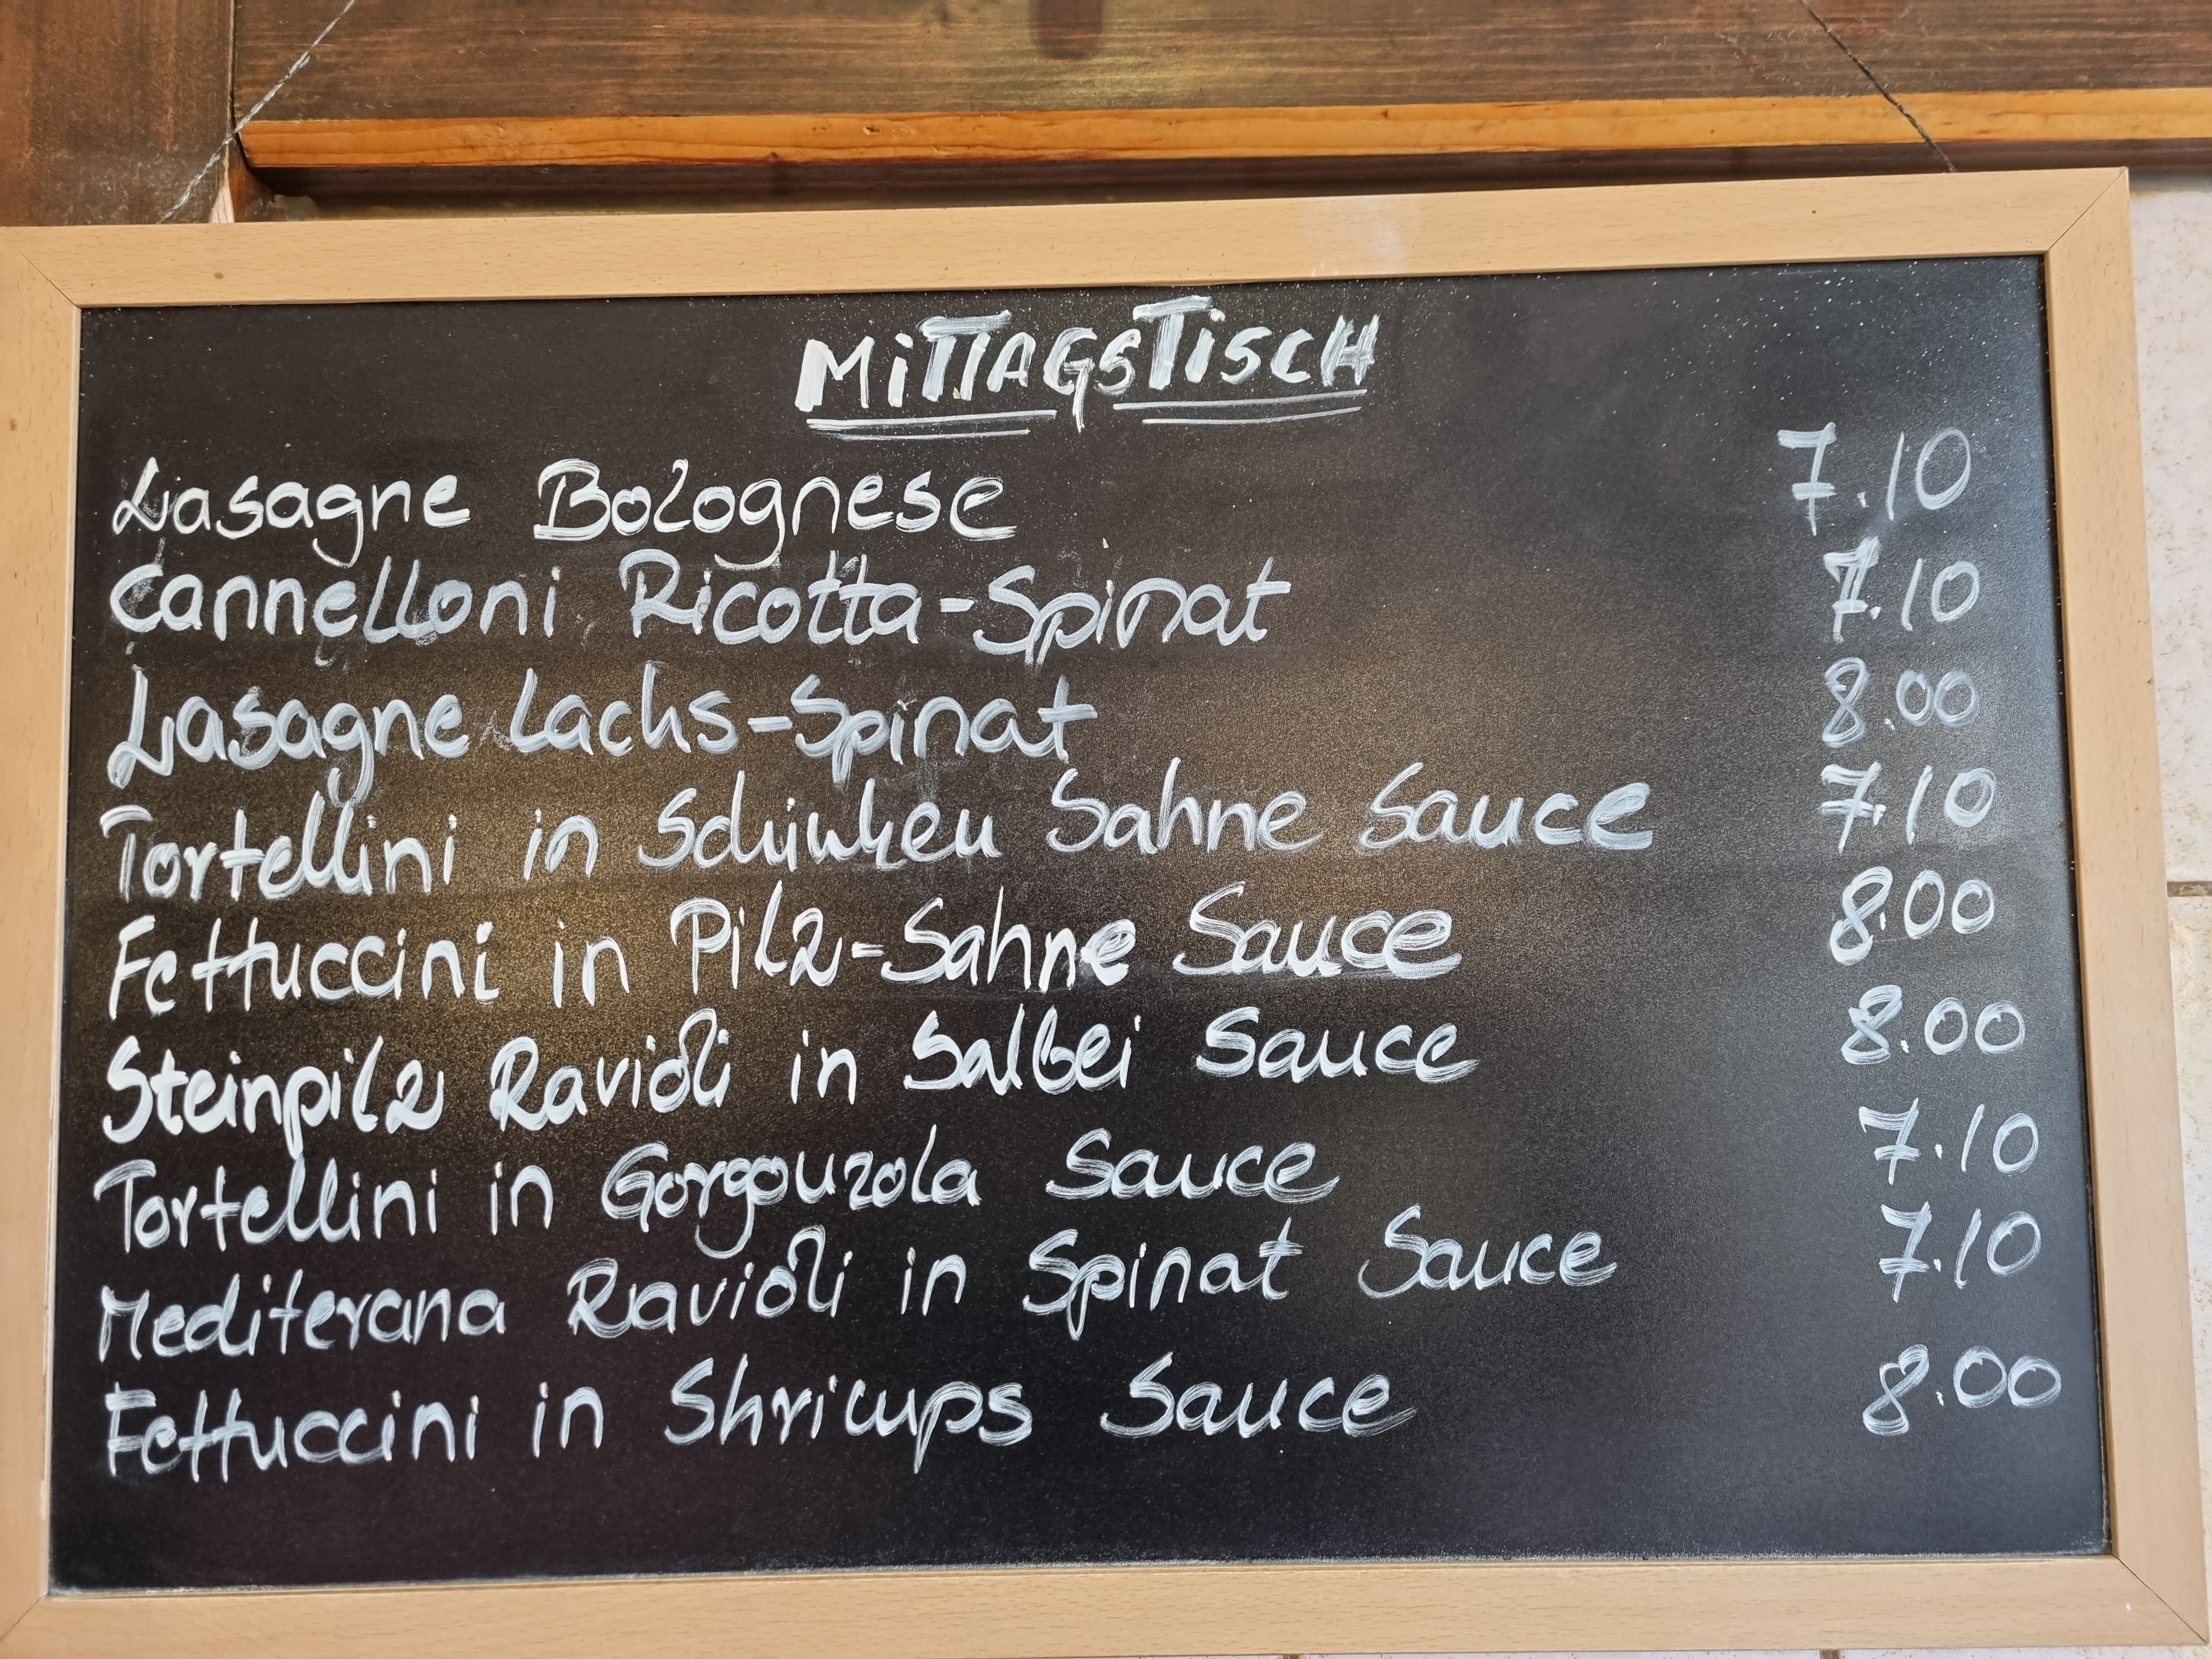 MiTTAGSTiSCH
Lasagne Bolognese 7.10
Cannelloni Ricotta-Spinat 7.10
Lasagne Lachs-Spinat 8.00
Tortellini in Schinken Sahne Sauce 7.10
Fettuccini in Pilz-Sahne Sauce 8.00
Steinpilz Ravioli in Salbei Sauce 8.00
Tortellini in Gorgonzola Sauce 7.10
Mediterana Ravioli in Spinat Sauce 7.10
Fettuccini in Shrimps Sauce 8.00